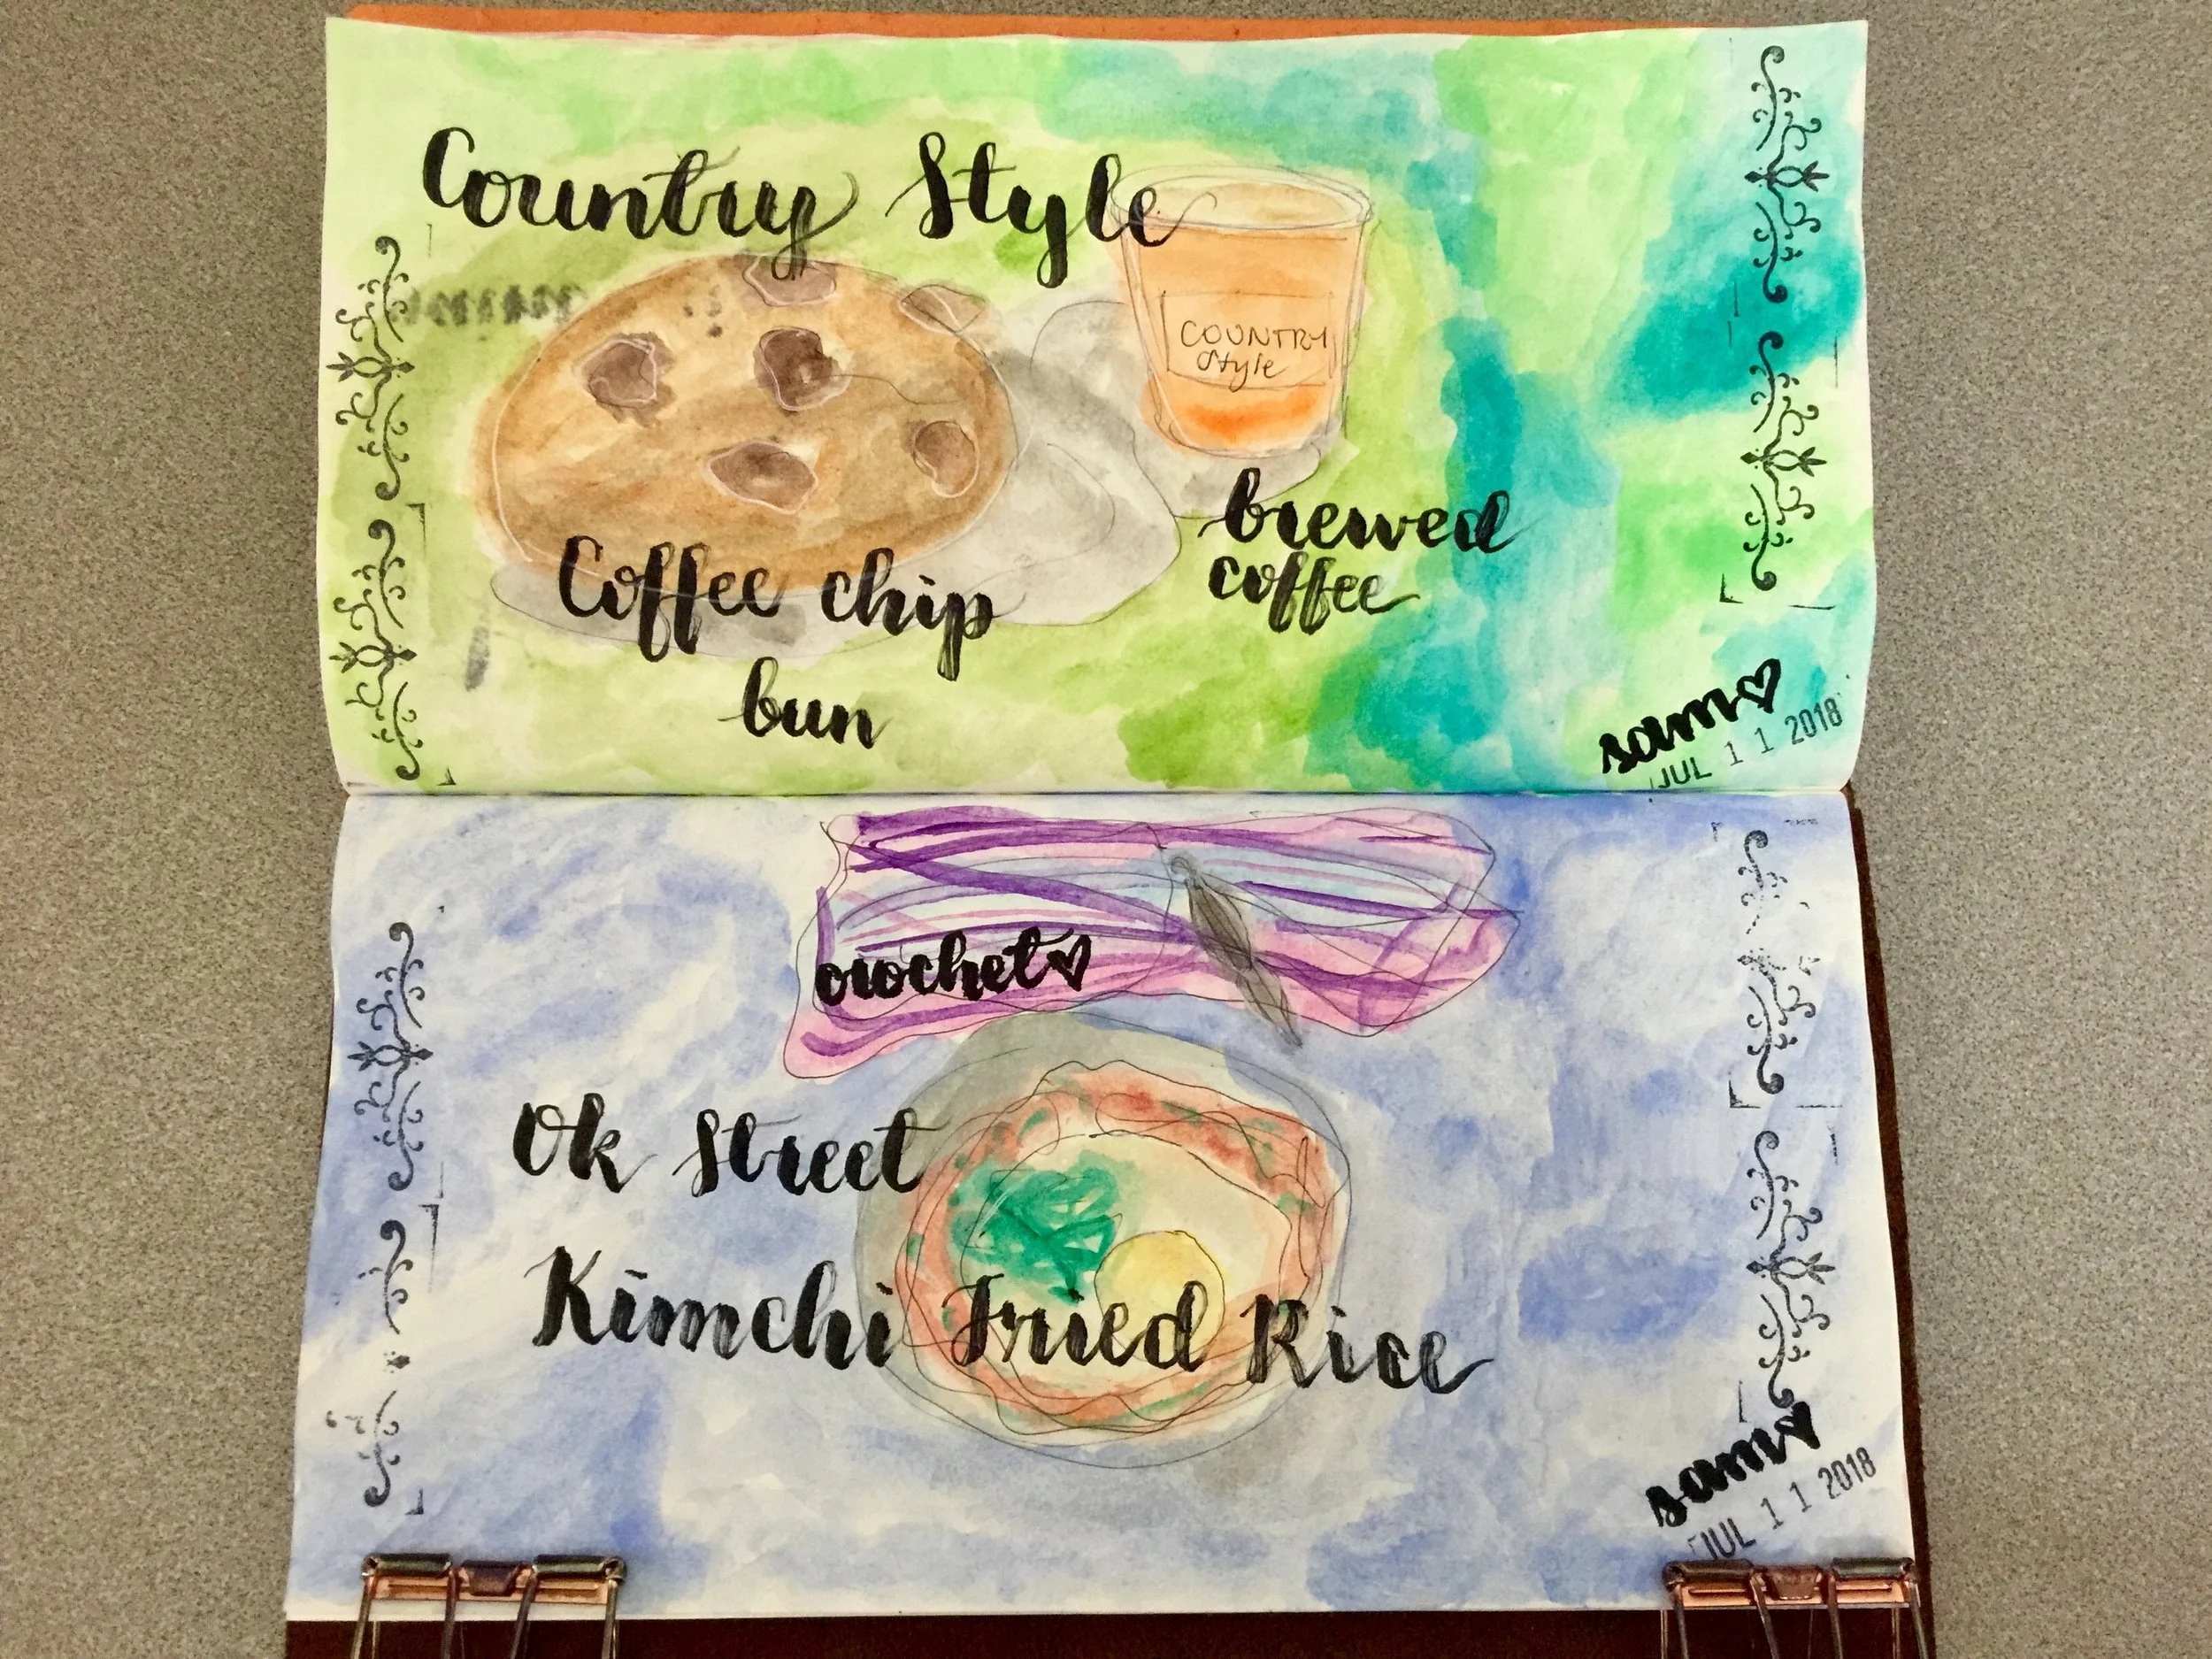 Country Style
COUNTRY
Style
brewed
coffee
Coffee chip
bun
sam
JUL 11 2018
crochet
Ok Street
Kimchi Fried Rice
sam
JUL 11 2018